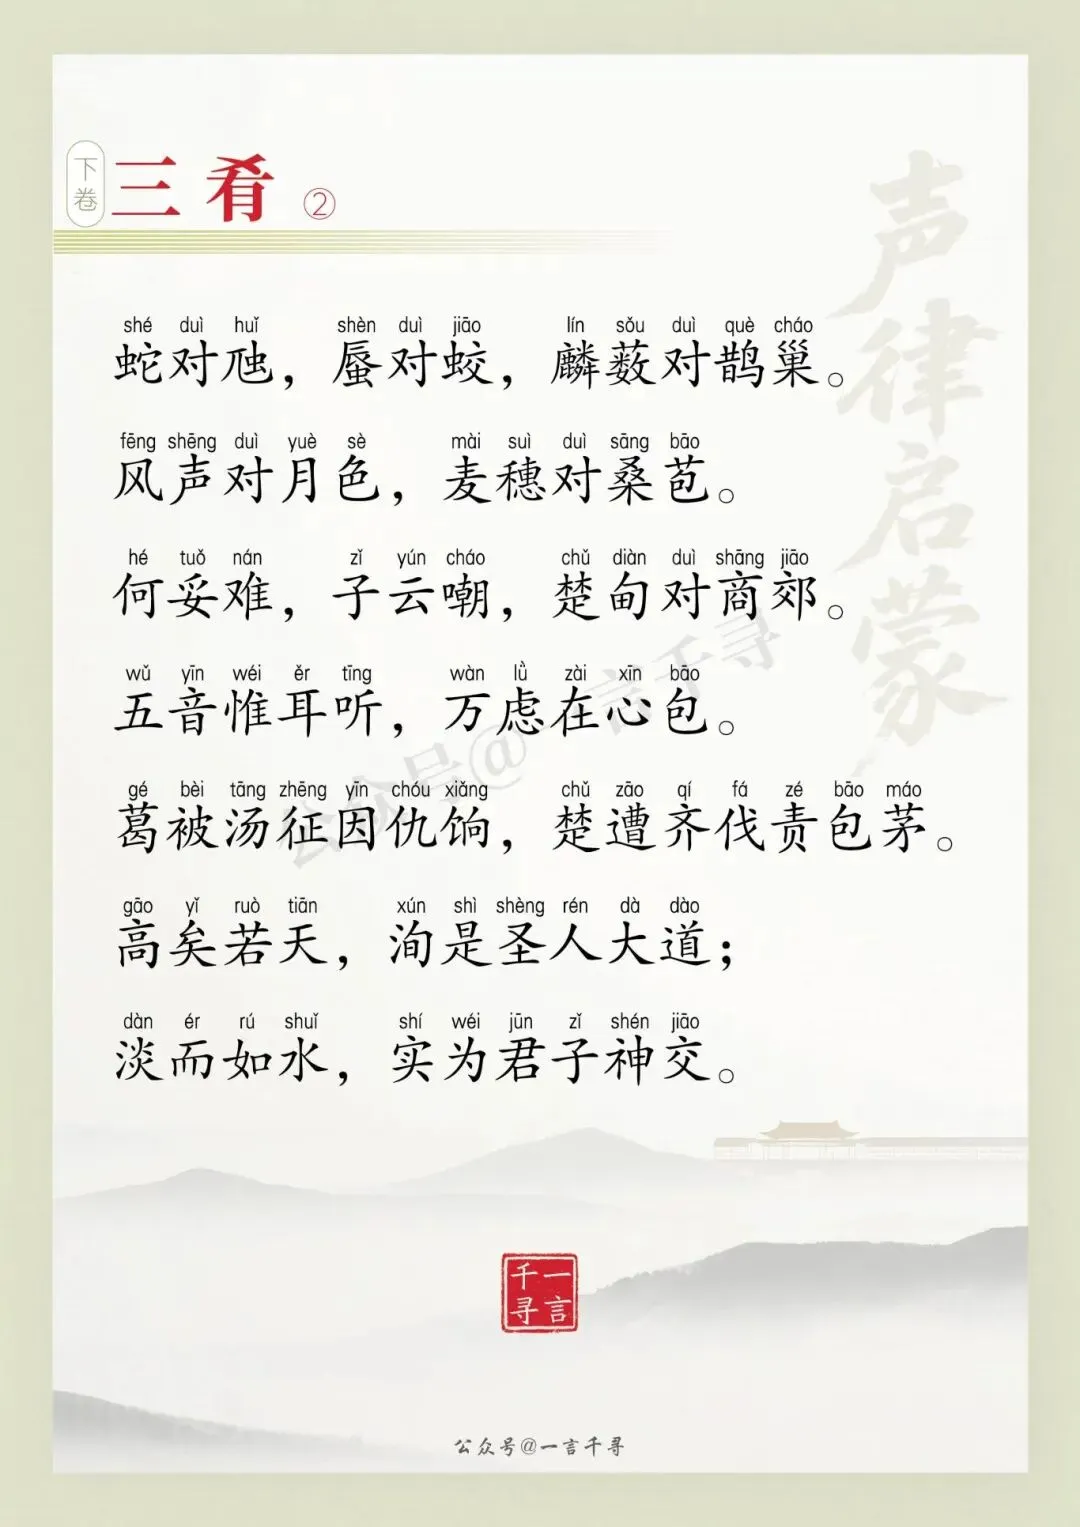 下卷
三肴 ②
声律启蒙
shé duì huǐ shèn duì jiāo lín sǒu duì què cháo
蛇对虺，蜃对蛟，麟薮对鹊巢。
fēng shēng duì yuè sè mài suì duì sāng bāo
风声对月色，麦穗对桑苞。
hé tuǒ nán zǐ yún cháo chǔ diàn duì shāng jiāo
何妥难，子云嘲，楚甸对商郊。
wǔ yīn wéi ěr tīng wàn lǜ zài xīn bāo
五音惟耳听，万虑在心包。
gé bèi tāng zhēng yīn chóu xiǎng chǔ zāo qí fá zé bāo máo
葛被汤征因仇饷，楚遭齐伐责包茅。
gāo yǐ ruò tiān xún shì shèng rén dà dào
高矣若天，洵是圣人大道；
dàn ér rú shuǐ shí wéi jūn zǐ shén jiāo
淡而如水，实为君子神交。
公众号@一言千寻
一言千寻
公众号@一言千寻